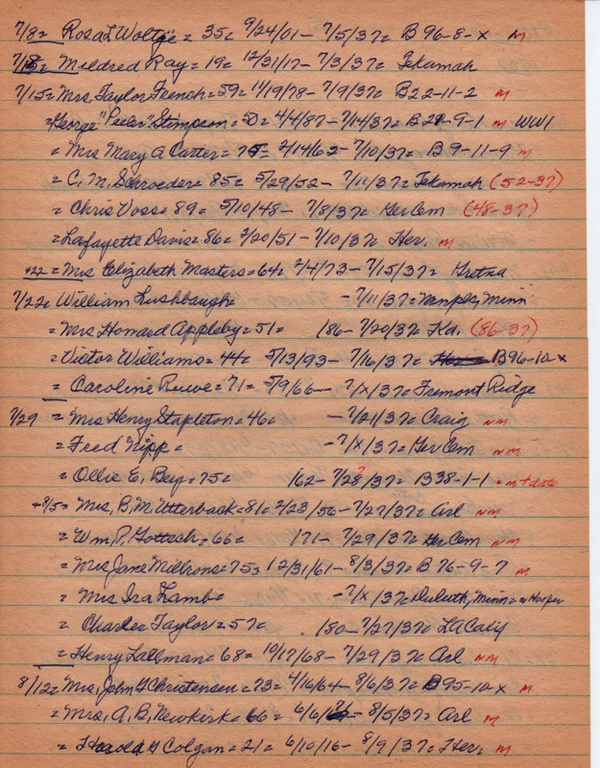 7/8 = Rosa L Woltje = 35 = 9/24/01 - 7/5/37 = B 96-8-x M
= Mildred Ray = 19 = 12/31/17 - 7/3/37 = Tekamah
7/15 = Mrs, Taylor French = 59 = 11/19/78 - 7/9/37 = B22-11-2 M
= George "Peeler" Stimpson = 50 = 4/4/87 - 7/14/37 = B 21-9-1 M WW1
= Mrs Mary A Carter = 75 = 2/14/62 - 7/10/37 = B 9-11-9 M
= C. M, Schroeder = 85 = 5/29/52 - 7/11/37 = Tekamah (52-37)
= Chris Voss = 89 = 5/10/48 - 7/8/37 = Ger Cem (48-37)
= Lafayette Davis = 86 = 2/20/51 - 7/10/37 = Her. M
+22 = Mrs Elizabeth Masters = 64 = 2/4/73 - 7/15/37 = Gretna
7/22 = William Rushbaugh - 7/11/37 = Mnpls, Minn
= Mrs Howard Appleby = 51 = 186 - 7/20/37 = Ka, (86-37)
= Victor Williams = 44 = 5/13/93 - 7/16/37 = B96-10-x
= Caroline Ruwe = 71 = 5/9/66 - 7/x/37 = Fremont Ridge
7/29 = Mrs Henry Stapleton = 46 = - 7/21/37 = Craig NM
= Fred Nipp = - 7/x/37 = Ger Cem NM
= Ollie E, Berg = 75 = 162 - 7/28/37 = B38-1-1 = M + date
+8/5 = Mrs, B, M, Utterback = 81 = 2/23/56 - 7/27/37 = Arl NM
= Wm, P, Gottsch = 66 = 171 - 7/29/37 = Ger Cem NM
= Mrs Jane Millhons = 75 = 12/31/61 - 8/3/37 = B 76-9-7 M
= Mrs Ira Lamb = - 7/x/37 = Duluth, Minn = Hooper
= Charles Taylor = 57 = 180 - 7/27/37 = LA Calif
= Henry Lallman = 68 = 10/17/68 - 7/29/37 = Arl NM
8/12 = Mrs, John G Christensen = 73 = 4/16/64 - 8/6/37 = B95-10-x M
= Mrs, A, B, Newkirk = 66 = 6/6/ - 8/5/37 = Arl M
= Harold G Colgan = 21 = 6/10/16 - 8/9/37 = Her, M